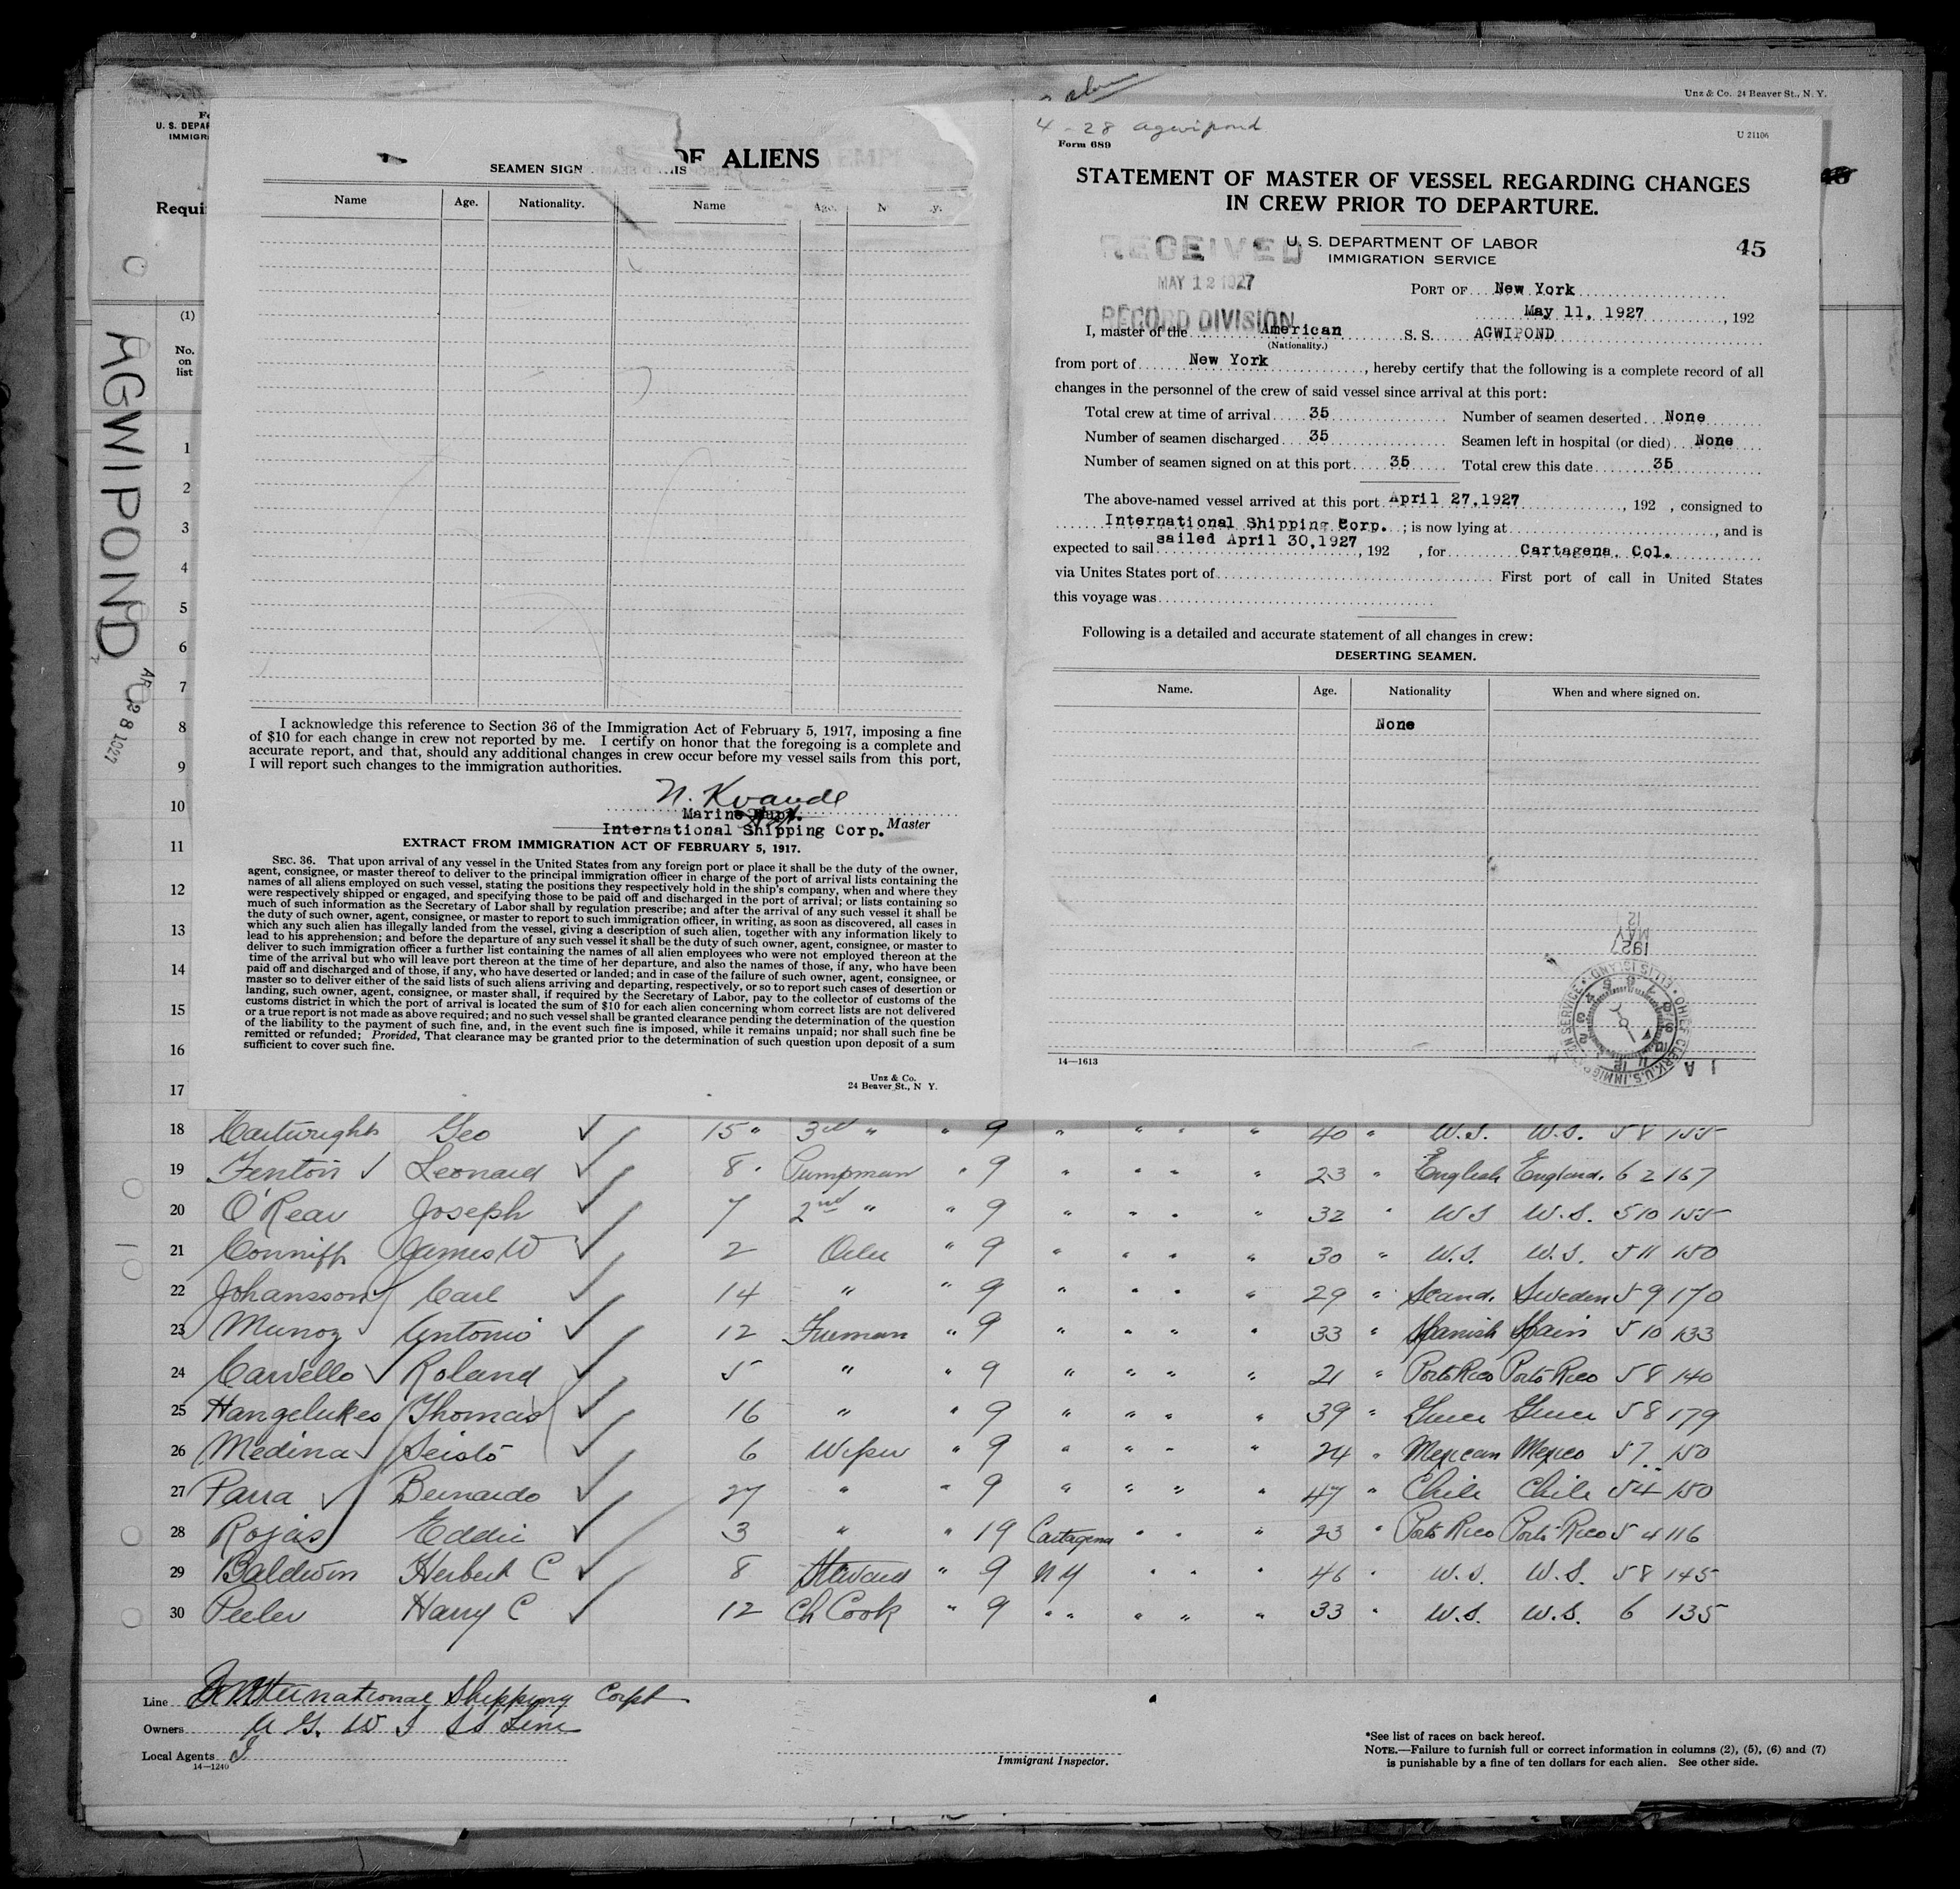 Unz & Co. 24 Beaver St., N. Y.
U. S. DEPAR
IMMIGR
Requi
(1)
No.
on
list
AGWIPOND
OF ALIENS
SEAMEN SIGN
Name Age. Nationality. Name Age. N y.
I acknowledge this reference to Section 36 of the Immigration Act of February 5, 1917, imposing a fine
of $10 for each change in crew not reported by me. I certify on honor that the foregoing is a complete and
accurate report, and that, should any additional changes in crew occur before my vessel sails from this port,
I will report such changes to the immigration authorities.
N. Kvande
Marine Dept.
International Shipping Corp. Master
EXTRACT FROM IMMIGRATION ACT OF FEBRUARY 5, 1917.
SEC. 36. That upon arrival of any vessel in the United States from any foreign port or place it shall be the duty of the owner,
agent, consignee, or master thereof to deliver to the principal immigration officer in charge of the port of arrival lists containing the
names of all aliens employed on such vessel, stating the positions they respectively hold in the ship's company, when and where they
were respectively shipped or engaged, and specifying those to be paid off and discharged in the port of arrival; or lists containing so
much of such information as the Secretary of Labor shall by regulation prescribe; and after the arrival of any such vessel it shall be
the duty of such owner, agent, consignee, or master to report to such immigration officer, in writing, as soon as discovered, all cases in
which any such alien has illegally landed from the vessel, giving a description of such alien, together with any information likely to
lead to his apprehension; and before the departure of any such vessel it shall be the duty of such owner, agent, consignee, or master to
deliver to such immigration officer a further list containing the names of all alien employees who were not employed thereon at the
time of the arrival but who will leave port thereon at the time of her departure, and also the names of those, if any, who have been
paid off and discharged and of those, if any, who have deserted or landed; and in case of the failure of such owner, agent, consignee, or
master so to deliver either of the said lists of such aliens arriving and departing, respectively, or so to report such cases of desertion or
landing, such owner, agent, consignee, or master shall, if required by the Secretary of Labor, pay to the collector of customs of the
customs district in which the port of arrival is located the sum of $10 for each alien concerning whom correct lists are not delivered
or a true report is not made as above required; and no such vessel shall be granted clearance pending the determination of the question
of the liability to the payment of such fine, and, in the event such fine is imposed, while it remains unpaid; nor shall such fine be
remitted or refunded; Provided, That clearance may be granted prior to the determination of such question upon deposit of a sum
sufficient to cover such fine.
Unz & Co.
24 Beaver St., N Y.
4-28 Agwipond
Form 689
U 21106
STATEMENT OF MASTER OF VESSEL REGARDING CHANGES
IN CREW PRIOR TO DEPARTURE.
RECEIVED
U. S. DEPARTMENT OF LABOR
IMMIGRATION SERVICE
45
MAY 12 1927
RECORD DIVISION
PORT OF New York
May 11, 1927, 192
I, master of the American S. S. AGWIPOND
(Nationality.)
from port of New York, hereby certify that the following is a complete record of all
changes in the personnel of the crew of said vessel since arrival at this port:
Total crew at time of arrival 35 Number of seamen deserted None
Number of seamen discharged 35 Seamen left in hospital (or died) None
Number of seamen signed on at this port 35 Total crew this date 35
The above-named vessel arrived at this port April 27,1927, 192 , consigned to
International Shipping Corp. ; is now lying at , and is
expected to sail sailed April 30,1927, 192 , for Cartagena, Col.
via Unites States port of First port of call in United States
this voyage was
Following is a detailed and accurate statement of all changes in crew:
DESERTING SEAMEN.
Name. Age. Nationality When and where signed on.
None
14—1613
1927
MAY
12
1
2
3
4
5
6
7
8
9
10
11
12
13
14
15
16
17
18 Cartwright Geo 15 " 3rd " " 9 " " " " 40 " U.S. U.S. 5 8 155
19 Fenton Leonard 8 " Pumpman " 9 " " " " 23 " English England. 6 2 167
20 O'Rear Joseph 7 2nd " " 9 " " " " 32 " U S U.S. 5 10 155
21 Conniff James W 2 Oiler " 9 " " " " 30 " U.S. U.S. 5 11 150
22 Johansson Carl 14 " " 9 " " " " 29 " Scand. Sweden 5 9 170
23 Munoz Antonio 12 Fireman " 9 " " " " 33 " Spanish Spain 5 10 133
24 Carvello Roland 5 " " 9 " " " " 21 " Porto Rico Porto Rico 5 8 140
25 Hangelukes Thomas 16 " " 9 " " " " 39 " Greece Greece 5 8 179
26 Medina 6 Wiper " 9 " " " " 24 " Mexican Mexico 5 7 150
27 Parra Bernardo 27 " " 9 " " " " 47 " Chile Chile 5 4 150
28 Rojas Eddie 3 " " 19 Cartagena " " " 23 " Porto Rico Porto Rico 5 4 116
29 Baldwin Herbert C 8 Steward " 9 N Y " " " 46 " U.S. U.S. 5 8 145
30 Peeler Harry C 12 Ch Cook " 9 " " " " " 33 " U.S. U.S. 6 135
Line International Shipping Corpt
Owners A. G. W I SS Line
Local Agents
14—1240
Immigrant Inspector.
*See list of races on back hereof.
NOTE.—Failure to furnish full or correct information in columns (2), (5), (6) and (7)
is punishable by a fine of ten dollars for each alien. See other side.